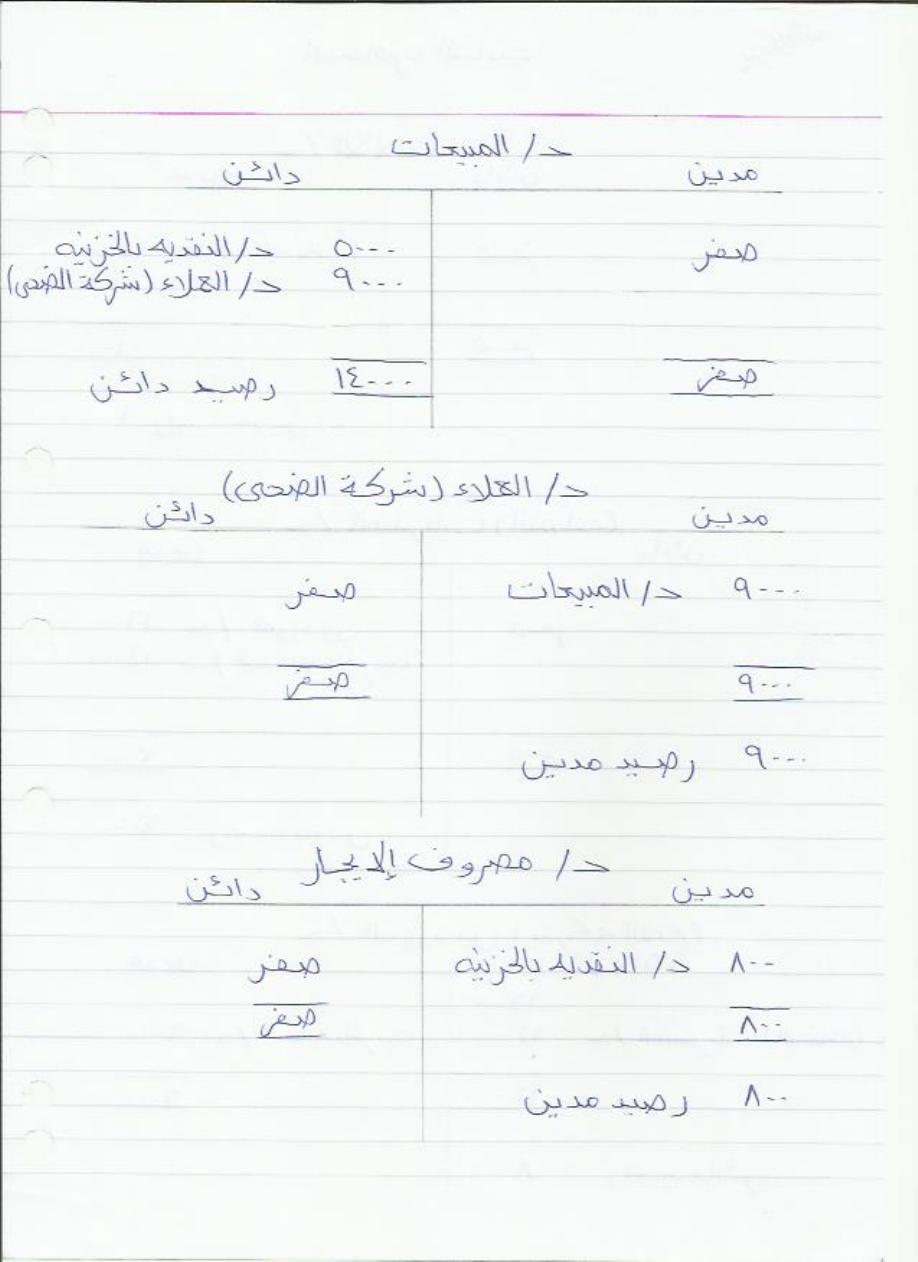 د/ المبيعات
مدين دائن
صفر ٥٠٠٠ د/ النقديه بالخزينه
٩٠٠٠ د/ العملاء (شركة الضحى)
صفر ١٤٠٠٠ رصيد دائن
د/ العملاء (شركة الضحى)
مدين دائن
٩٠٠٠ د/ المبيعات صفر
٩٠٠٠ صفر
٩٠٠٠ رصيد مدين
د/ مصروف إلايجار
مدين دائن
٨٠٠ د/ النقديه بالخزينه صفر
٨٠٠ صفر
٨٠٠ رصيد مدين